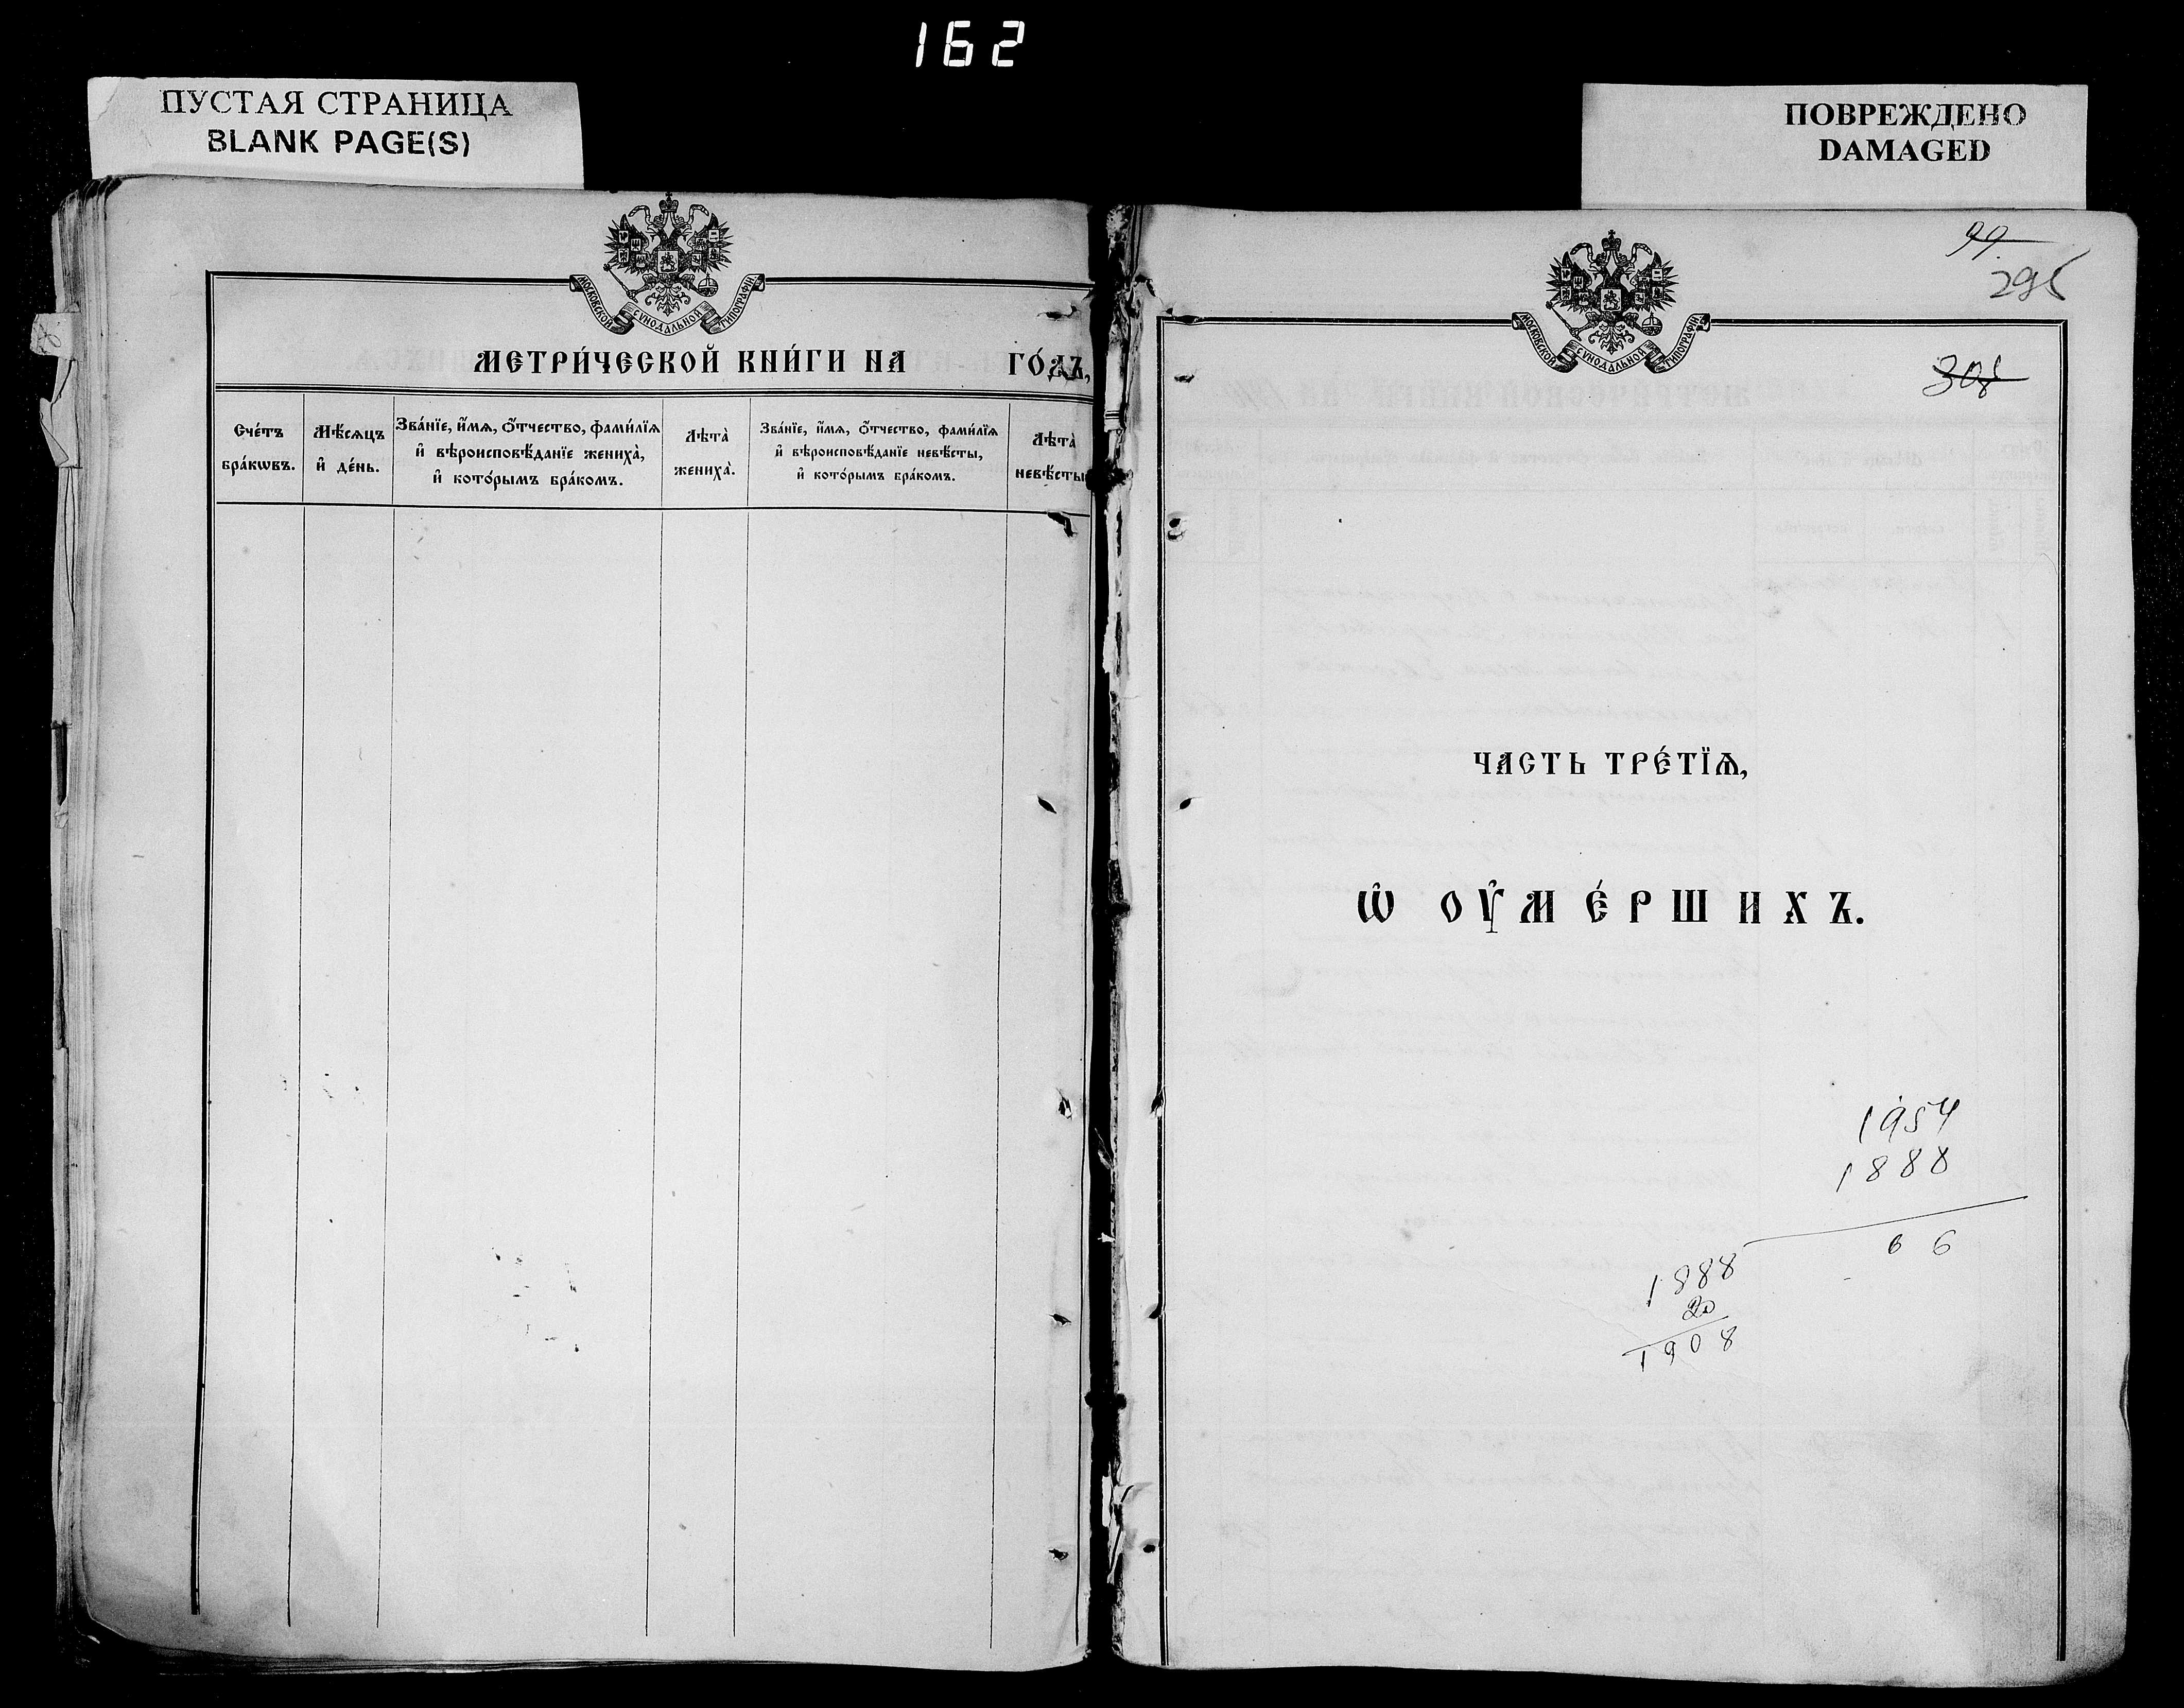 162
ПУСТАЯ СТРАНИЦА
BLANK PAGE(S)
МОСКОВСКОЙ СѴНОДАЛЬНОЙ ТИПОГРАФІИ.
МЕТРИ́ЧЕСКОЙ КНИ́ГИ НА ГО́ДЪ,
Сче́тъ бра́кѡвъ.
Мѣ́сяцъ и҆ де́нь.
Зва́нїе, и҆́мѧ, ѻ҆́тчество, фами́лїѧ
и҆ вѣроисповѣ́данїе жениха̀,
и҆ кото́рымъ бра́комъ.
Лѣта̀ жениха̀.
Зва́нїе, и҆́мѧ, ѻ҆́тчество, фами́лїѧ
и҆ вѣроисповѣ́данїе невѣ́сты,
и҆ кото́рымъ бра́комъ.
Лѣта̀ невѣ́сты
ПОВРЕЖДЕНО
DAMAGED
99
МОСКОВСКОЙ СѴНОДАЛЬНОЙ ТИПОГРАФІИ.
ЧАСТЬ ТРЕ́ТЇѦ,
Ѡ҆ ОУ҆МЕ́РШИХЪ.
1954
1888
66
1888
20
1908